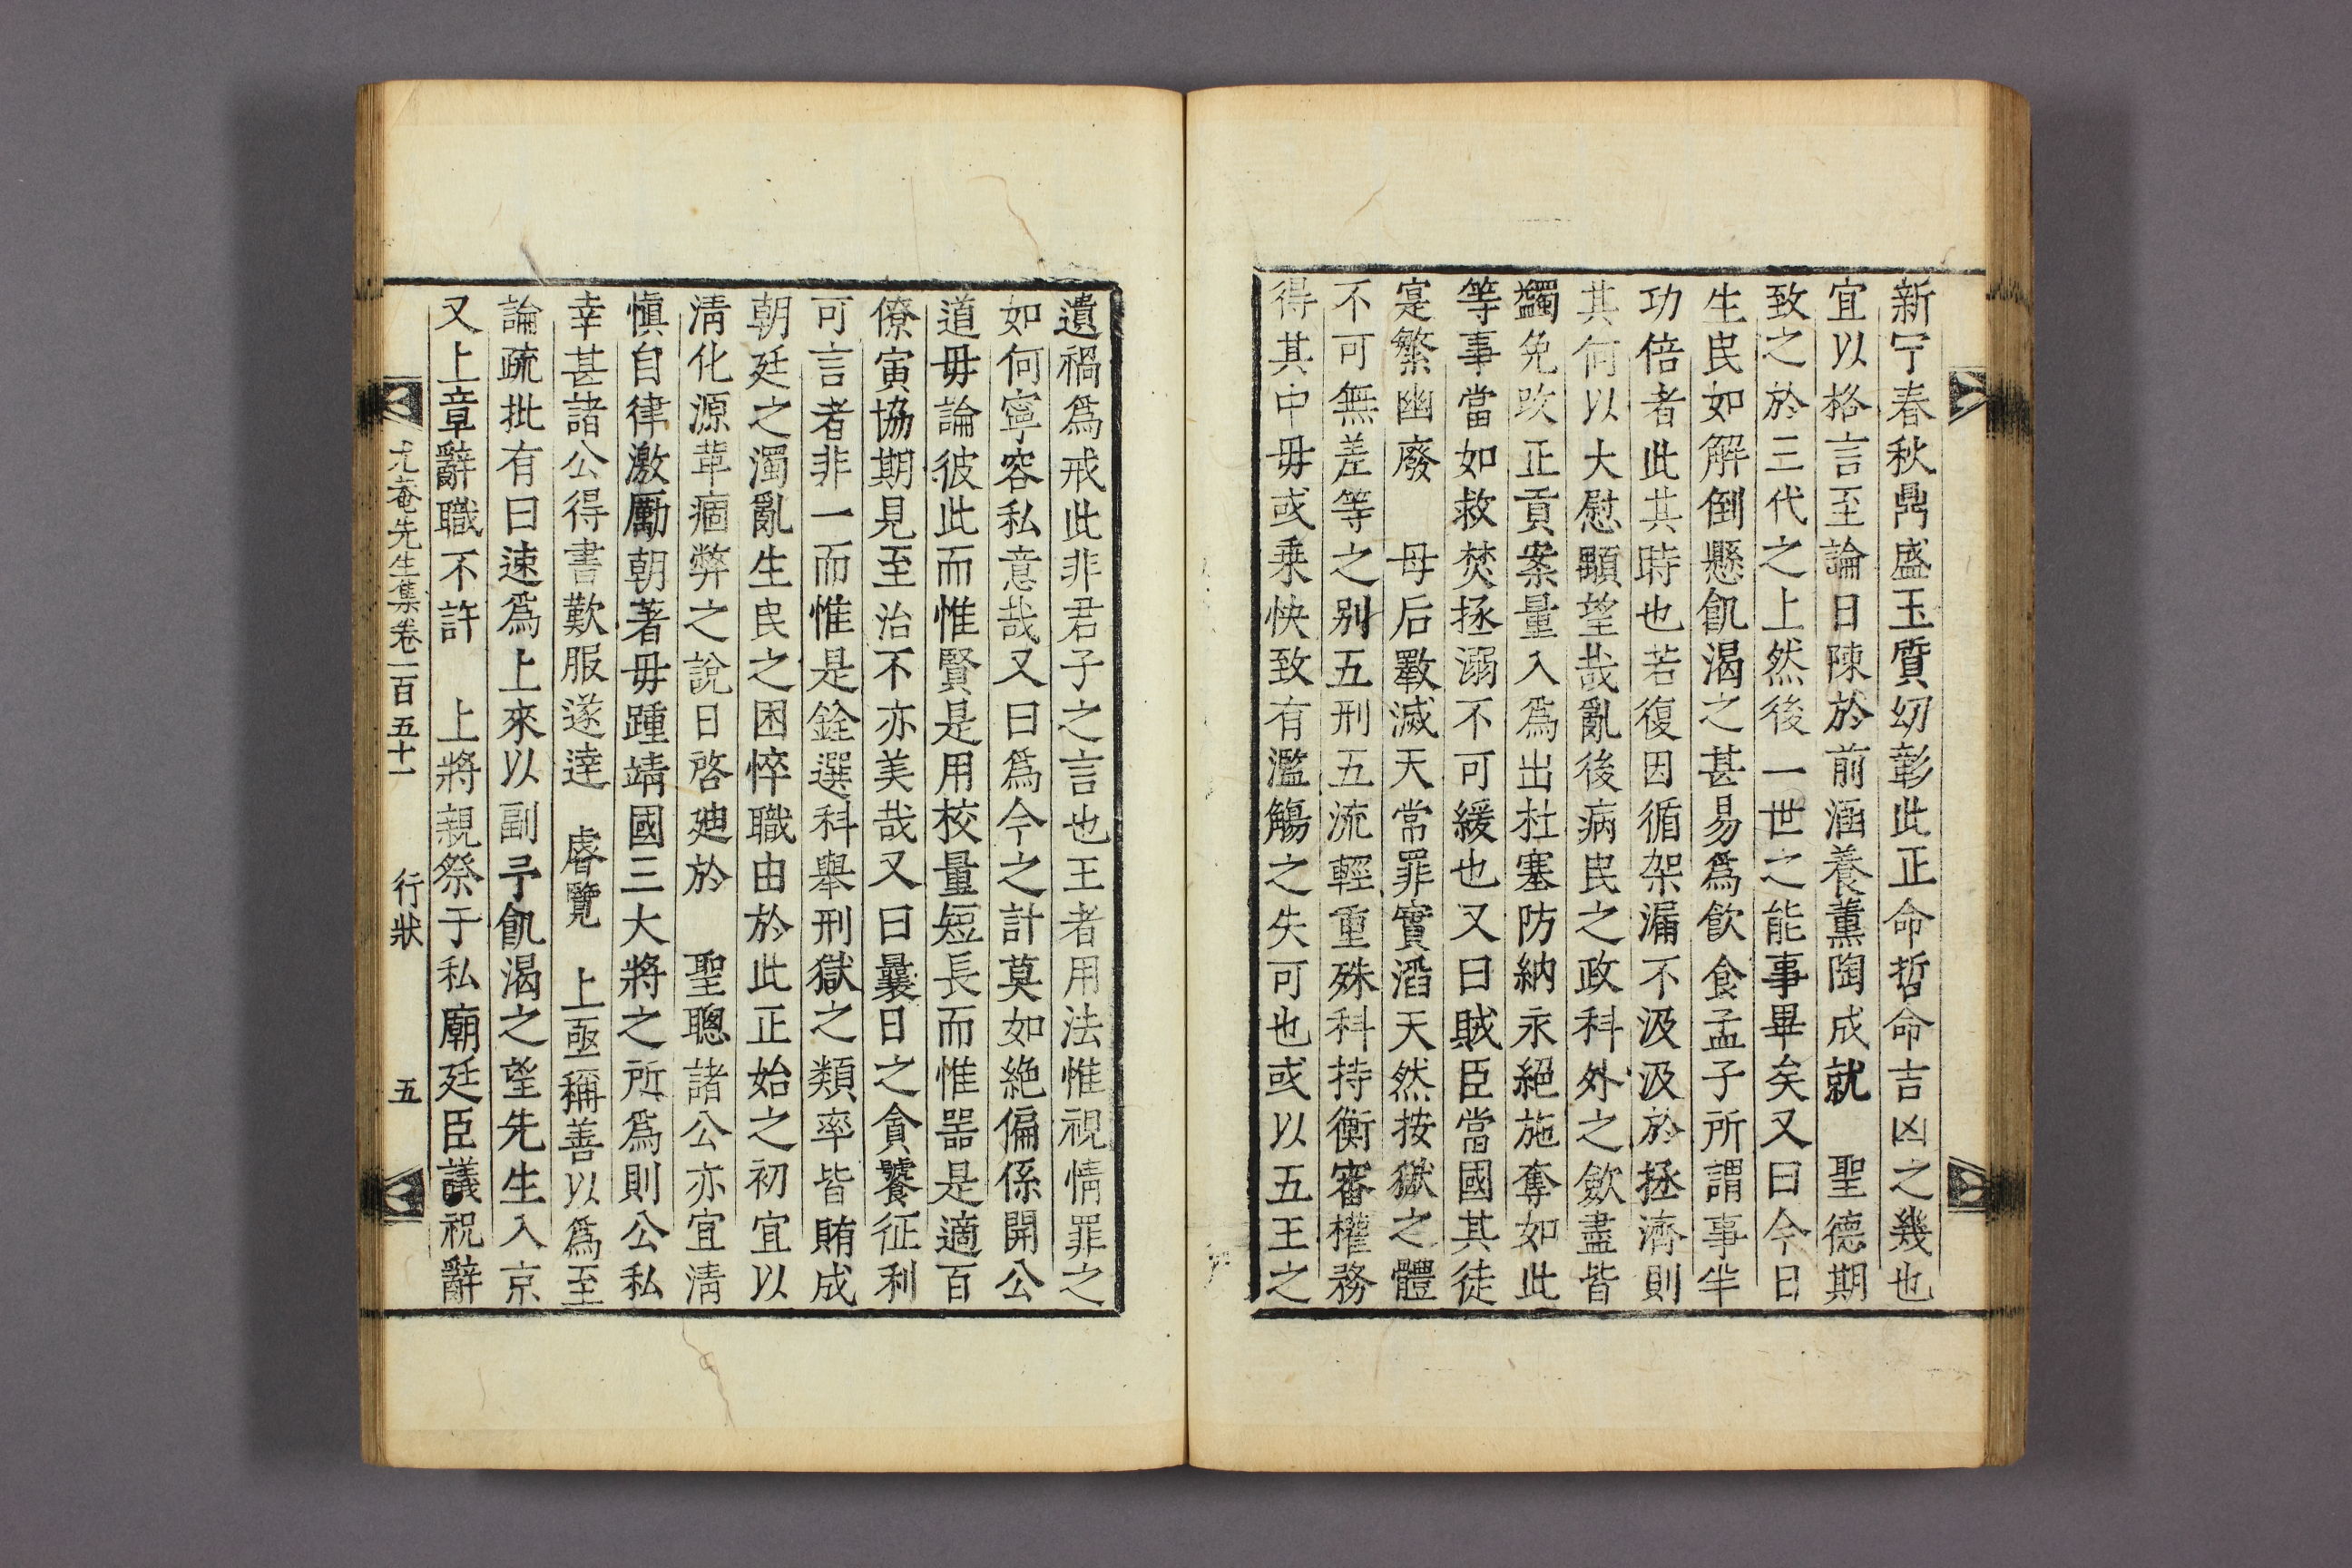 新宁春秋鼎盛玉質幼彰此正命哲命吉凶之幾也
宜以格言至論日陳於前涵養薰陶成就　聖德期
致之於三代之上然後一世之能事畢矣又曰今日
生民如解倒懸飢渴之甚易爲飮食孟子所謂事半
功倍者此其時也若復因循架漏不汲汲於拯濟則
其何以大慰顒望哉亂後病民之政科外之斂盡皆
蠲免改正貢案量入爲出杜塞防納永絕施奪如此
等事當如救焚拯溺不可緩也又曰賊臣當國其徒
寔繁幽廢　母后斁滅天常罪實滔天然按獄之體
不可無差等之别五刑五流輕重殊科持衡審權務
得其中毋或乗快致有濫觴之失可也或以五王之
遺禍爲戒此非君子之言也王者用法惟視情罪之
如何寧容私意哉又曰爲今之計莫如絶偏係開公
道毋論彼此而惟賢是用校量短長而惟器是適百
僚寅協期見至治不亦美哉又曰曩日之貪饕征利
可言者非一而惟是銓選科舉刑獄之類率皆賄成
朝廷之濁亂生民之困悴職由於此正始之初宜以
淸化源革痼弊之說日啓廸於　聖聰諸公亦宜淸
愼自律激厲朝著毋踵靖國三大將之所爲則公私
幸甚諸公得書歎服遂達　睿覽　上亟稱善以爲至
論疏批有曰速爲上來以副予飢渴之望先生入京
又上章辭職不許　上將親祭于私廟廷臣議祝辭
尤菴先生集卷一百五十一　行狀　五